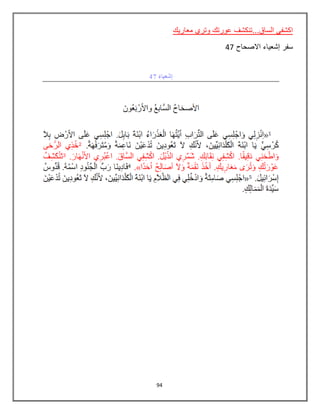 اكشفي الساق...تنكشف عورتك وتري معاريك
سفر إشعياء الاصحاح 47
إشعياء 47
الأصحَاحُ السَّابعُ والأَرْبَعُونَ
1«اِنْزِلِي وَاجْلِسِي عَلَى التُّرَابِ أَيَّتُهَا الْعَذْرَاءُ ابْنَةَ بَابِلَ. اجْلِسِي عَلَى الأَرْضِ بِلاَ
كُرْسِيٍّ يَا ابْنَةَ الْكَلْدَانِيِّينَ، لأَنَّكِ لاَ تَعُودِينَ تُدْعَيْنَ نَاعِمَةً وَمُتَرَفِّهَةً. 2خُذِي الرَّحَى
وَاطْحَنِي دَقِيقًا. اكْشِفِي نُقَابَكِ. شَمِّرِي الذَّيْلَ. اكْشِفِي السَّاقَ. اعْبُرِي الأَنْهَارَ. 3تَنْكَشِفُ
عَوْرَتُكِ وَتُرَى مَعَارِيكِ. آخُذُ نَقْمَةً وَلاَ أُصَالِحُ أَحَدًا». 4فَادِينَا رَبُّ الْجُنُودِ اسْمُهُ. قُدُّوسُ
إِسْرَائِيلَ. 5«اجْلِسِي صَامِتَةً وَادْخُلِي فِي الظَّلاَمِ يَا ابْنَةَ الْكَلْدَانِيِّينَ، لأَنَّكِ لاَ تَعُودِينَ تُدْعَيْنَ
سَيِّدَةَ الْمَمَالِكِ.
94